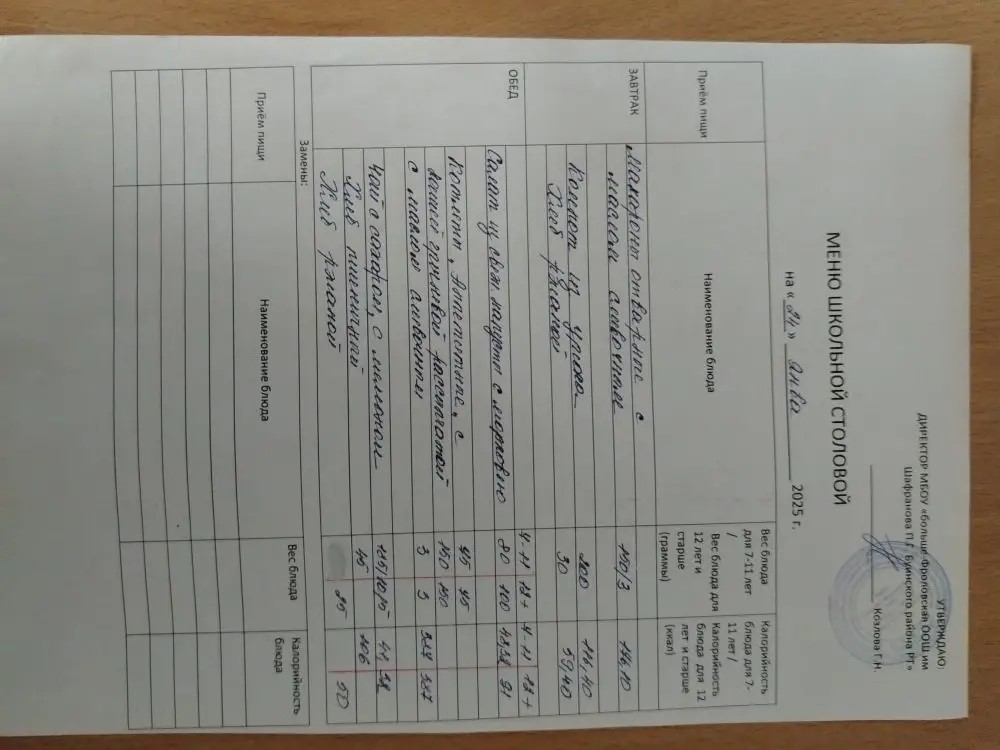 УТВЕРЖДАЮ:
ДИРЕКТОР МБОУ «больше-Фроловская ООШ им
Шафранова П.Г. Буинского района РТ»
Козлова Г.Н.
МЕНЮ ШКОЛЬНОЙ СТОЛОВОЙ
на « 24 » янва 2025 г.
Приём пищи Наименование блюда Вес блюда для 7-11 лет / Вес блюда для 12 лет и старше (граммы) Калорийность блюда для 7-11 лет / Калорийность блюда для 12 лет и старше (ккал)
ЗАВТРАК
Макароны отварные с
маслом сливочные 150/3 146,10
Компот из урюка 200 116,40
Хлеб ржаной 30 59,40
ОБЕД 7-11 12+ 7-11 12+
Салат из свеж. капусты с морковью 80 100 91
Котлеты "Аппетитные" с 45 45
кашей гречневой рассыпчатой 150 150
с маслом сливочным 3 3
Чай с сахаром, с молоком
Хлеб пшеничный 45 106
Хлеб ржаной 25 50
Замены:
Приём пищи Наименование блюда Вес блюда Калорийность блюда